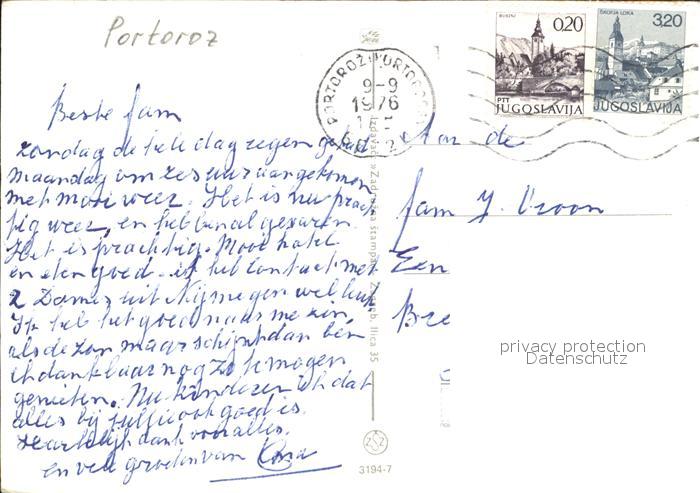 Portoroz
BLEJSKI
0,20
PTT
JUGOSLAVIJA
ŠKOFJA LOKA
3,20
JUGOSLAVIJA
PORTOROŽ PORTOROSE
9-9
1976
Beste fam
zondag de hele dag regen gehad
maandag om zes uur aangekomen
met mooi weer. Het is nu prach
tig weer, en heb banal gevaren.
Het is prachtig. Mooi hotel
en eten goed. ik heb contact met
2 Dames uit Nijmegen wel leuk
Ik heb het goed naar me zin,
als de zon maar schijnt dan ben
ik dankbaar nog zo te mogen
genieten. Nu ik hoop dat
alles bij jullie ook goed is.
Hartelijk dank voor alles.
en vele groeten van Oma
Izdavač » Zadružna štampa « Zagreb, Ilica 35
3194-7
Aan de
fam J. Vroon
Een
Bre
privacy protection
Datenschutz